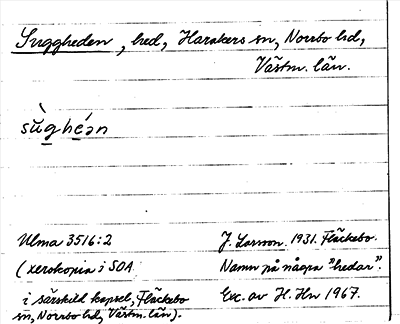 Suggheden, hed, Harakers sn, Norrbo hd,
Västm. län.
sùghéan
Ulma 3516:2
J. Larsson. 1931. Fläckebo.
(xerokopia i SOA
Namn på några "hedar".
i särskild kapsel, Fläckebo
Exc. av H. Hn 1967.
sn, Norrbo hd, Västm. län).